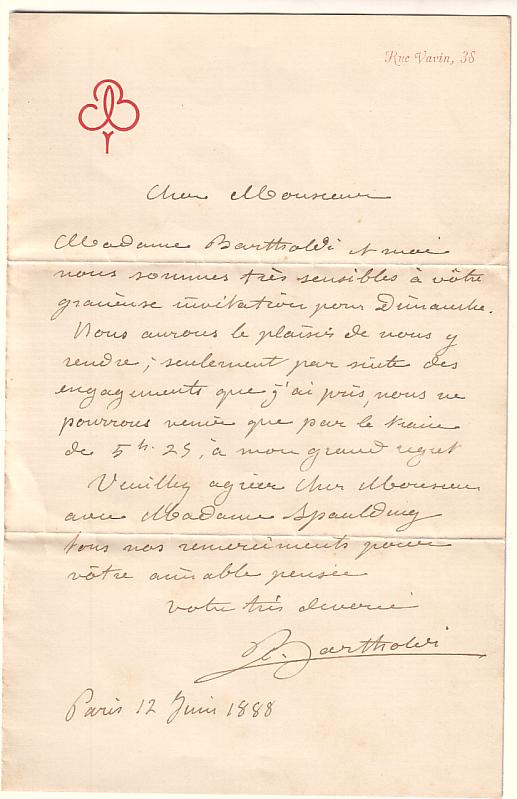 Rue Vavin, 38
Cher Monsieur
Madame Bartholdi et moi
nous sommes très sensibles à vôtre
gracieuse invitation pour Dimanche.
Nous aurons le plaisir de nous y
rendre; seulement par suite des
engagements que j'ai pris, nous ne
pourrons venir que par le train
de 5 h. 25, à mon grand regret
Veuillez agréer Cher Monsieur
avec Madame Spaulding
tous nos remerciments pour
vôtre aimable pensée
votre très dévoué
Bartholdi
Paris 12 Juin 1888